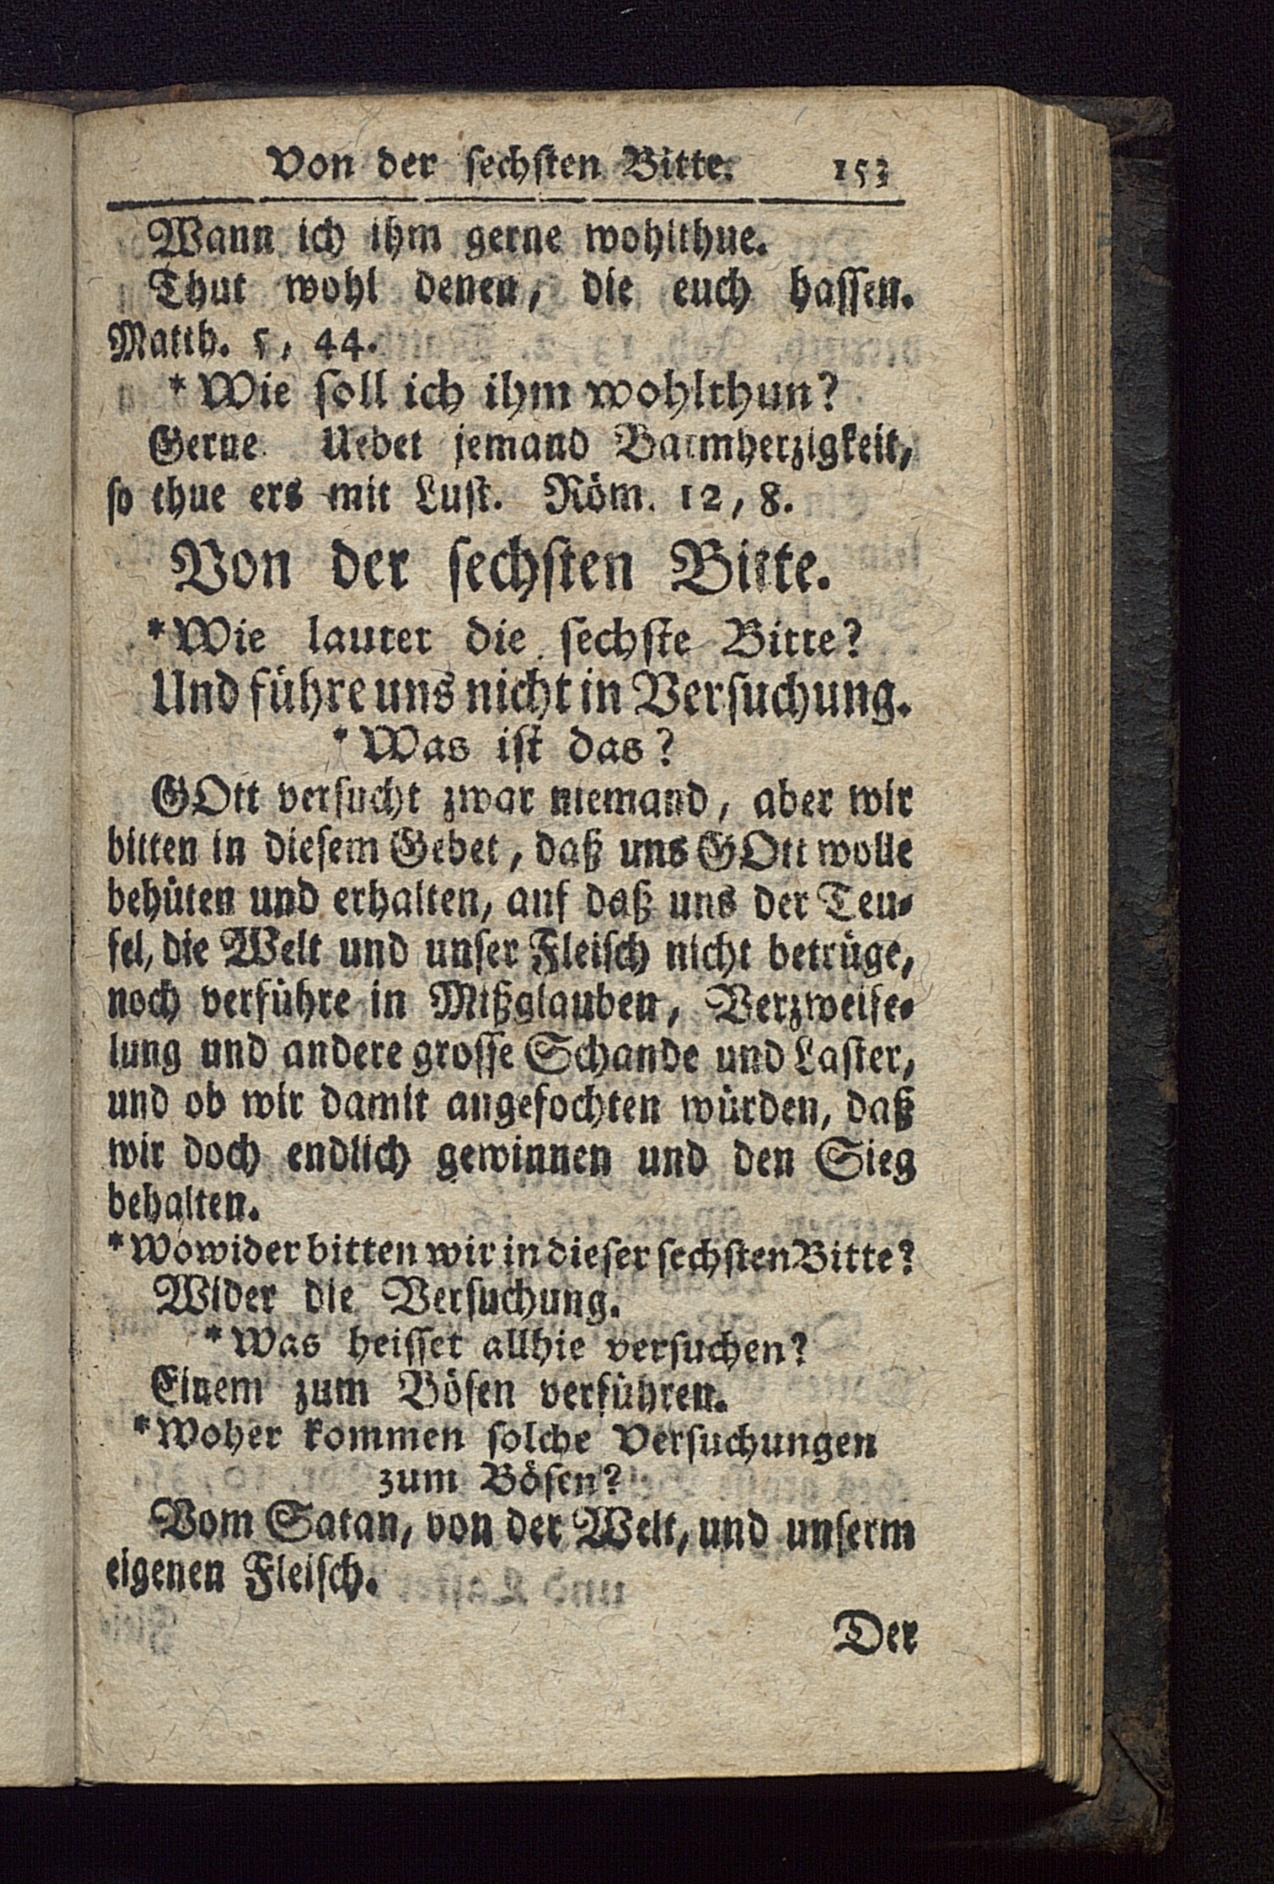 Von der sechsten Bitte. 153
Wann ich ihm gerne wohlthue.
Thut wohl denen, die euch hassen.
Matth. 5, 44.
*Wie soll ich ihm wohlthun?
Gerne. Uebet jemand Barmherzigkeit,
so thue ers mit Lust. Röm. 12, 8.
Von der sechsten Bitte.
*Wie lautet die sechste Bitte?
Und führe uns nicht in Versuchung.
*Was ist das?
GOtt versucht zwar niemand, aber wir
bitten in diesem Gebet, daß uns GOtt wolle
behüten und erhalten, auf daß uns der Teu-
fel, die Welt und unser Fleisch nicht betrüge,
noch verführe in Mißglauben, Verzweife-
lung und andere grosse Schande und Laster,
und ob wir damit angefochten würden, daß
wir doch endlich gewinnen und den Sieg
behalten.
*Wowider bitten wir in dieser sechsten Bitte?
Wider die Versuchung.
*Was heisset allhie versuchen?
Einem zum Bösen verführen.
*Woher kommen solche Versuchungen
zum Bösen?
Vom Satan, von der Welt, und unserm
eigenen Fleisch.
Der